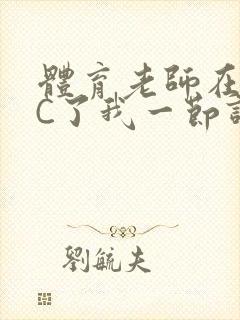 體育老師在
C了我一節
劉毓夫